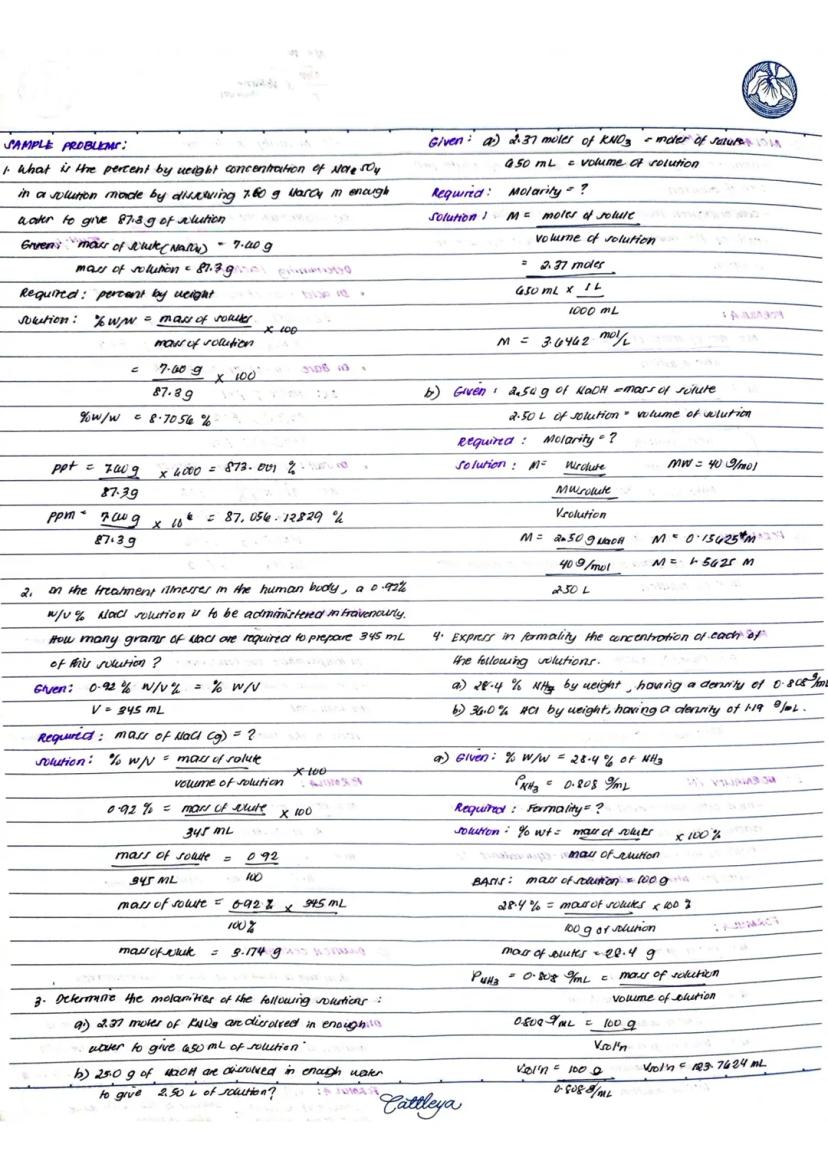 SAMPLE PROBLEMS:
1. What is the percent by weight concentration of Na2SO4
in a solution made by dissolving 7.60 g Na2SO4 in enough
water to give 87.3 g of solution
Given: mass of solute (Na2SO4) = 7.60 g
mass of solution = 87.3 g
Required: percent by weight
Solution: % W/W = mass of solutes × 100
mass of solution
= 7.60 g × 100
87.3 g
% W/W = 8.7056 %
ppt = 7.60 g × 1000
87.3 g
ppm = 7.60 g × 10^6 = 87,056.12829 %
87.3 g
2. In the treatment illnesses in the human body, a 0.92%
W/V % NaCl solution is to be administered intravenously.
How many grams of NaCl are required to prepare 345 mL
of this solution?
Given: 0.92 % W/V % = % W/V
V = 345 mL
Required: mass of NaCl (g) = ?
Solution: % W/V = mass of solute × 100
volume of solution
0.92 % = mass of solute × 100
345 mL
mass of solute = 0.92
345 mL 100
mass of solute = 0.92 % × 345 mL
100 %
mass of solute = 3.174 g
3. Determine the molarities of the following solutions:
a) 2.37 moles of KNO3 are dissolved in enough
water to give 650 mL of solution.
b) 25.0 g of NaOH are dissolved in enough water
to give 2.50 L of solution?
Given: a) 2.37 moles of KNO3 = moles of solute
650 mL = volume of solution
Required: Molarity = ?
Solution: M = moles of solute
volume of solution
= 2.37 moles
650 mL × 1 L
1000 mL
M = 3.6462 mol/L
b) Given: g of NaOH = mass of solute
2.50 L of solution = volume of solution
Required: Molarity = ?
Solution: M = Wsolute MW = 40 g/mol
MWsolute
Vsolution
M = g NaOH M = 0.15625 M
40 g/mol M = 1.5625 M
2.50 L
4. Express in formality the concentration of each of
the following solutions.
a) 28.4 % NH3 by weight, having a density of 0.808 g/mL
b) 36.0 % HCl by weight, having a density of 1.19 g/mL.
a) Given: % W/W = 28.4 % of NH3
ρNH3 = 0.808 g/mL
Required: Formality = ?
Solution: % wt = mass of solutes × 100 %
mass of solution
BASIS: mass of solution = 100 g
28.4 % = mass of solutes × 100 %
100 g of solution
mass of solutes = 28.4 g
ρNH3 = 0.808 g/mL = mass of solution
volume of solution
0.808 g/mL = 100 g
Vsol'n
Vsol'n = 100 g Vsol'n = 123.7624 mL
0.808 g/mL
Cattleya